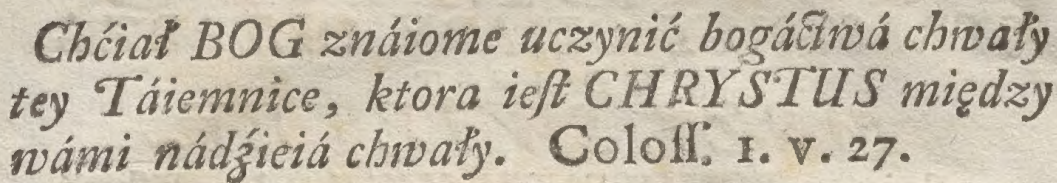 Chćiał BOG znáiome uczynić bogáctwá chwały
tey Táiemnice, ktora ieſt CHRYSTUS między
wámi nádźieiá chwały. Coloſſ. 1. v. 27.